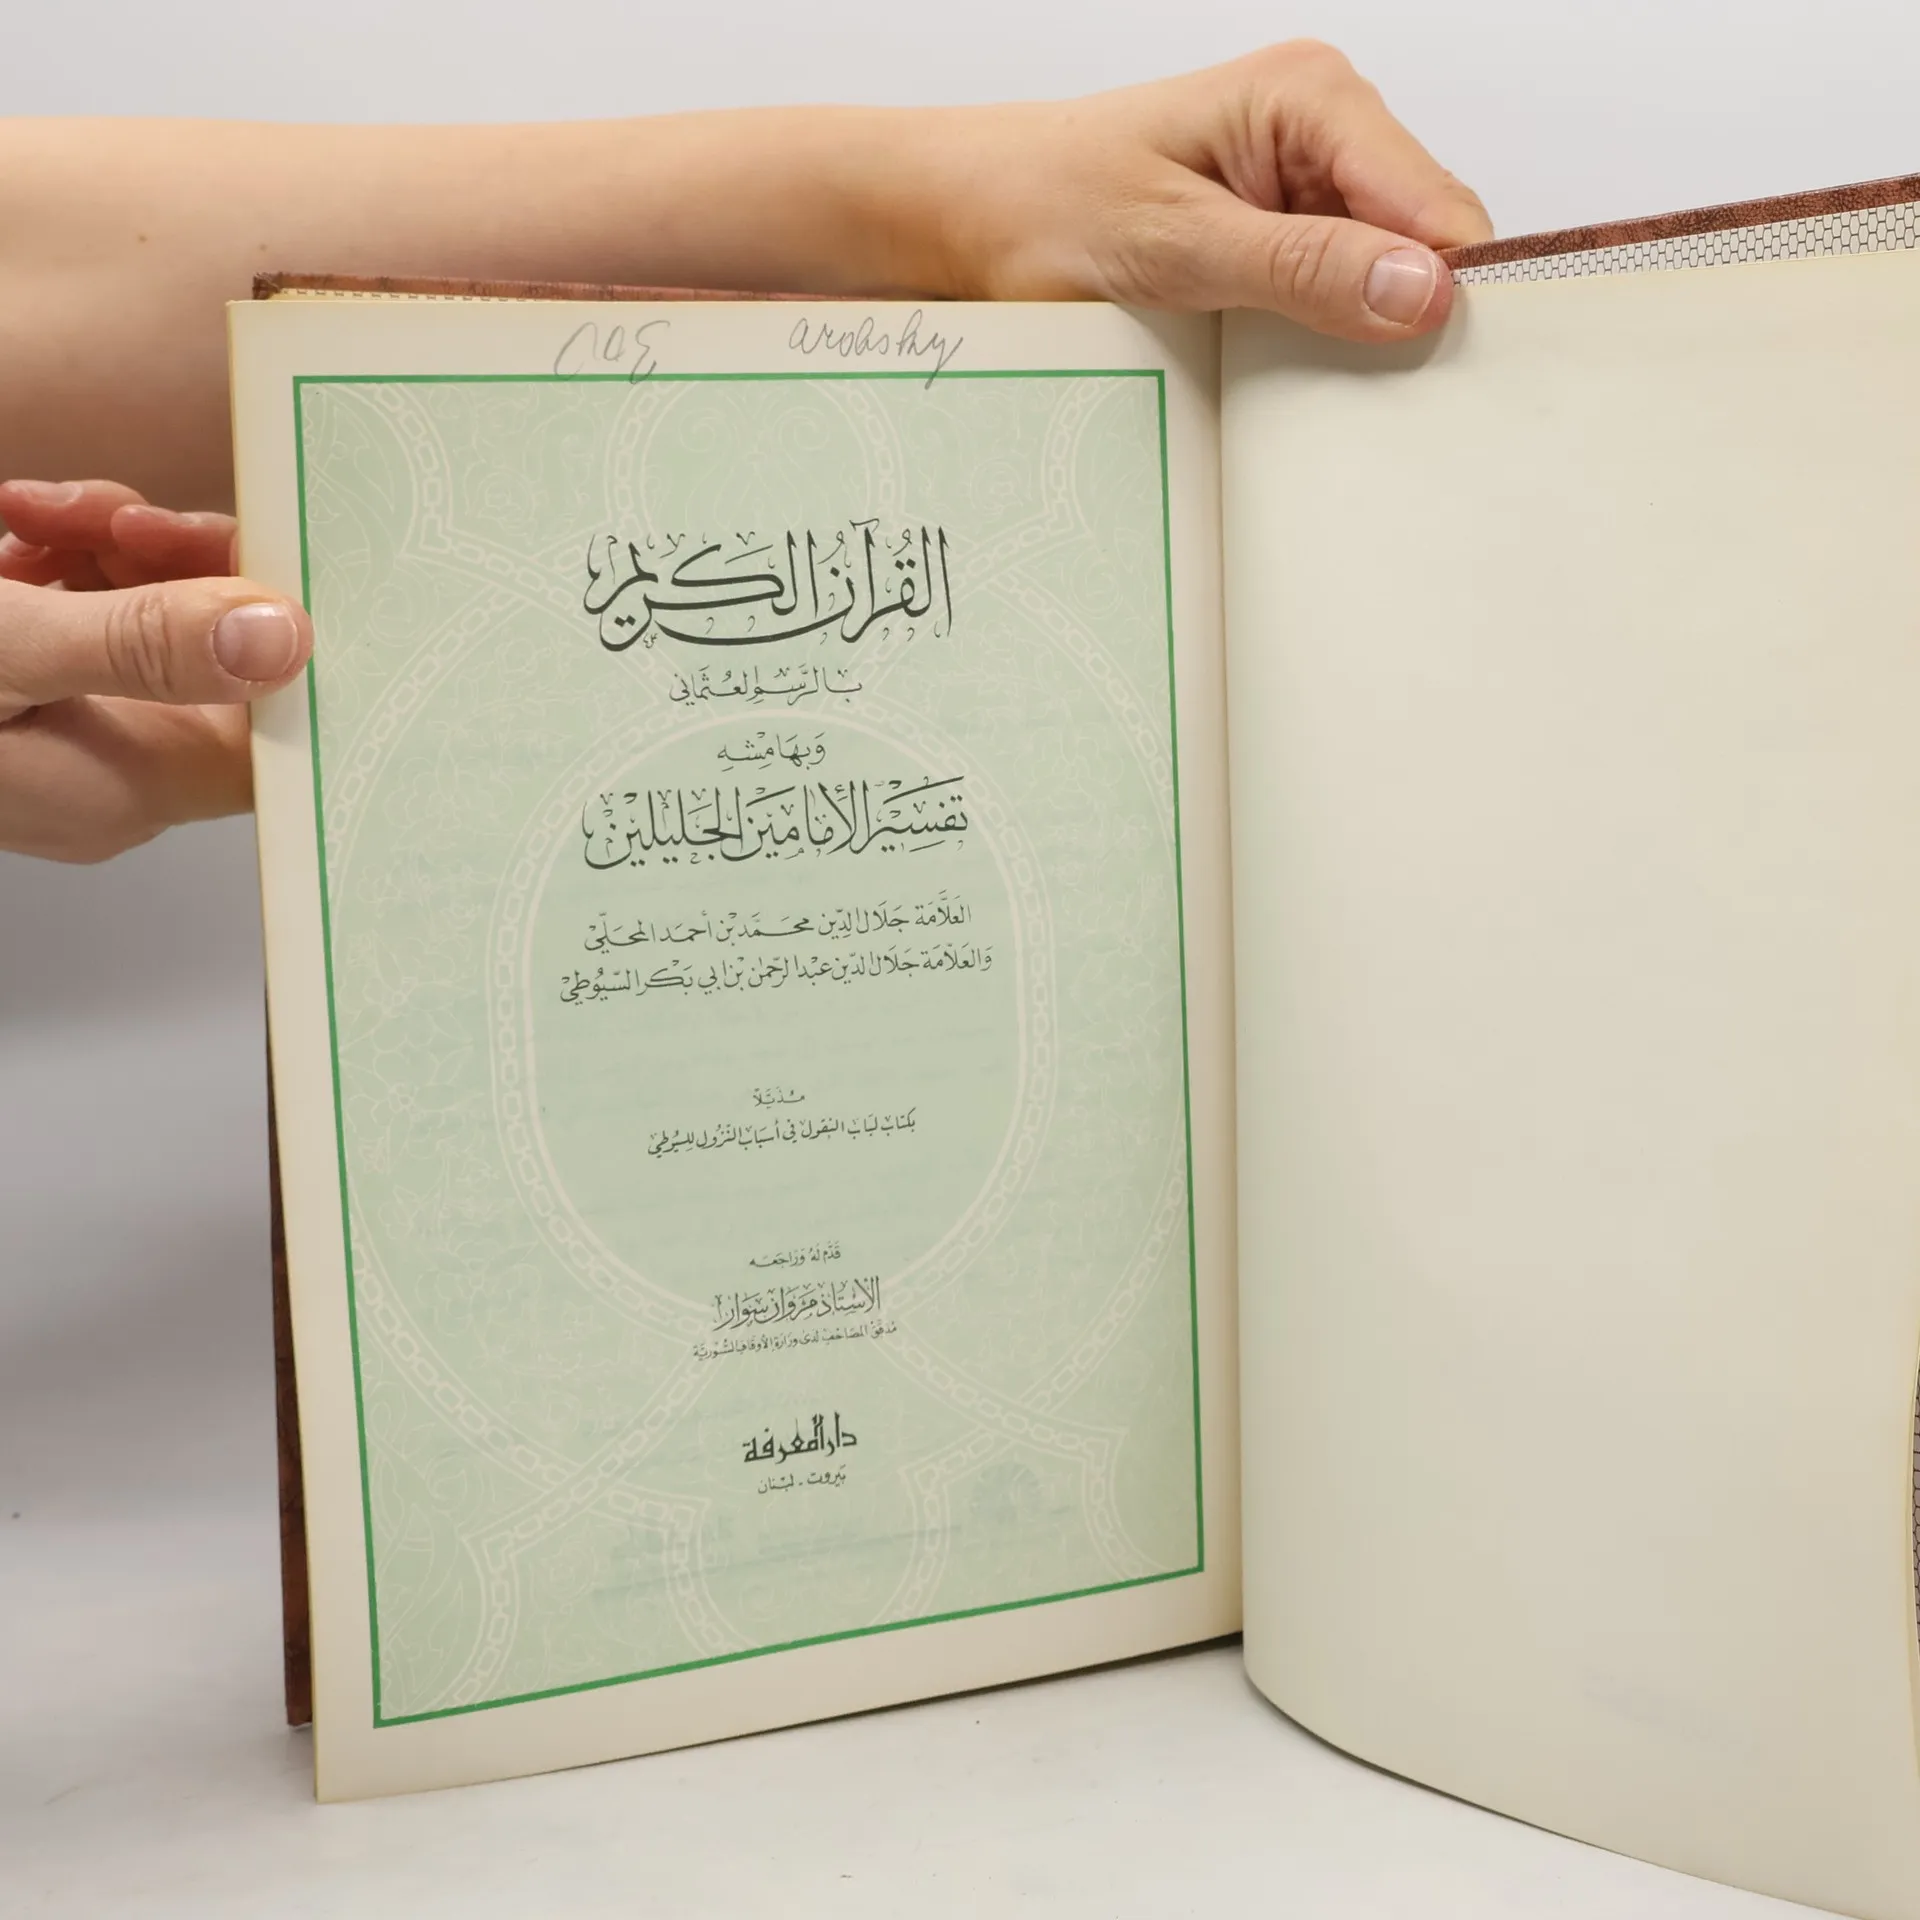 arabsky
القُرآنُ الكَريم
بِالرَّسمِ العُثْمَاني
وَبِهَامِشِهِ
تَفسِيْر الإمَامَيْن الجَلِيلَيْن
العَلَّامَة جَلَال الدِّين محمَّد بْن أحمَد المحَلّي
وَالعَلّامَة جَلَال الدّين عبْد الرّحمٰن بْن أبي بَكْر السّيُوطي
مُذَيَّلاً
بكتاب لبَاب النقول في أسبَاب النّزُول للسيُوطي
قَدَّم لَهُ وَرَاجَعَه
الأستَاذ مَرْوَان سَوَار
مُدَقّق المصَاحف لدى وزَارة الأوقاف السُّوريَّة
دار المعرفة
بَيروت - لبْنان